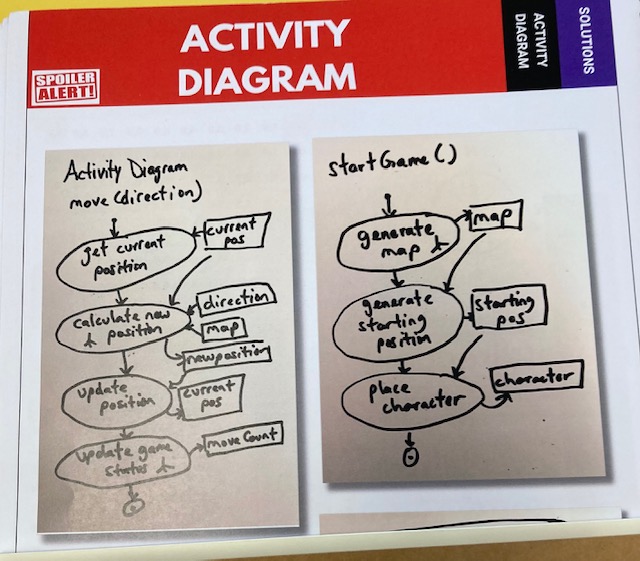 ACTIVITY
DIAGRAM
SPOILER
ALERT!
ACTIVITY
DIAGRAM
SOLUTIONS
Activity Diagram
move(direction)
get current
position
current
pos
calculate new
position
direction
map
newposition
update
position
current
pos
update game
status
moveCount
startGame()
generate
map
map
generate
starting
position
starting
pos
place
character
character